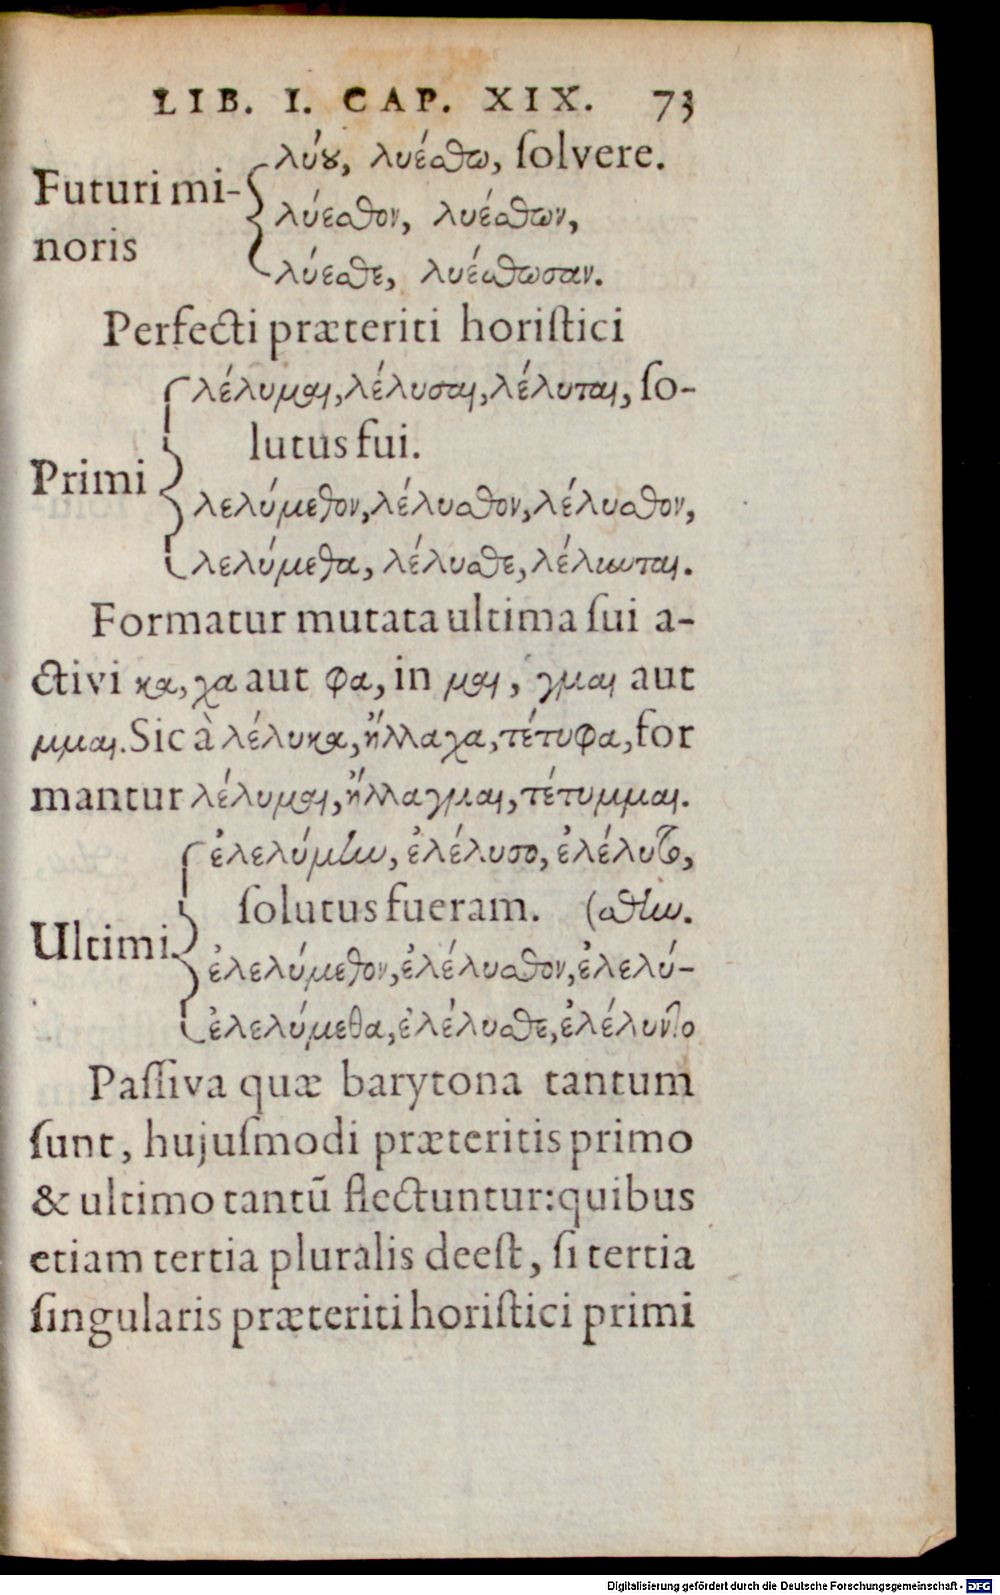 LIB. I. CAP. XIX. 73
λύȣ, λυέσθω, ſolvere.
Futuri mi-
λύεσθον, λυέσθων,
noris
λύεσθε, λυέσθωσαν.
Perfecti præteriti horiſtici
λέλυμαι, λέλυσαι, λέλυται, ſo-
lutus fui.
Primi
λελύμεθον, λέλυσθον, λέλυσθον,
λελύμεθα, λέλυσθε, λέλυνται.
Formatur mutata ultima ſui a-
ctivi κα, χα aut φα, in μαι, γμαι aut
μμαι. Sic à λέλυκα, ἤλλαχα, τέτυφα, for
mantur λέλυμαι, ἤλλαγμαι, τέτυμμαι.
ἐλελύμην, ἐλέλυσο, ἐλέλυτο,
ſolutus fueram. (σθην.
Ultimi
ἐλελύμεθον, ἐλέλυσθον, ἐλελύ-
ἐλελύμεθα, ἐλέλυσθε, ἐλέλυντο
Paſſiva quæ barytona tantum
ſunt, hujuſmodi præteritis primo
& ultimo tantū flectuntur: quibus
etiam tertia pluralis deeſt, ſi tertia
ſingularis præteriti horiſtici primi
Digitalisierung gefördert durch die Deutsche Forschungsgemeinschaft - DFG